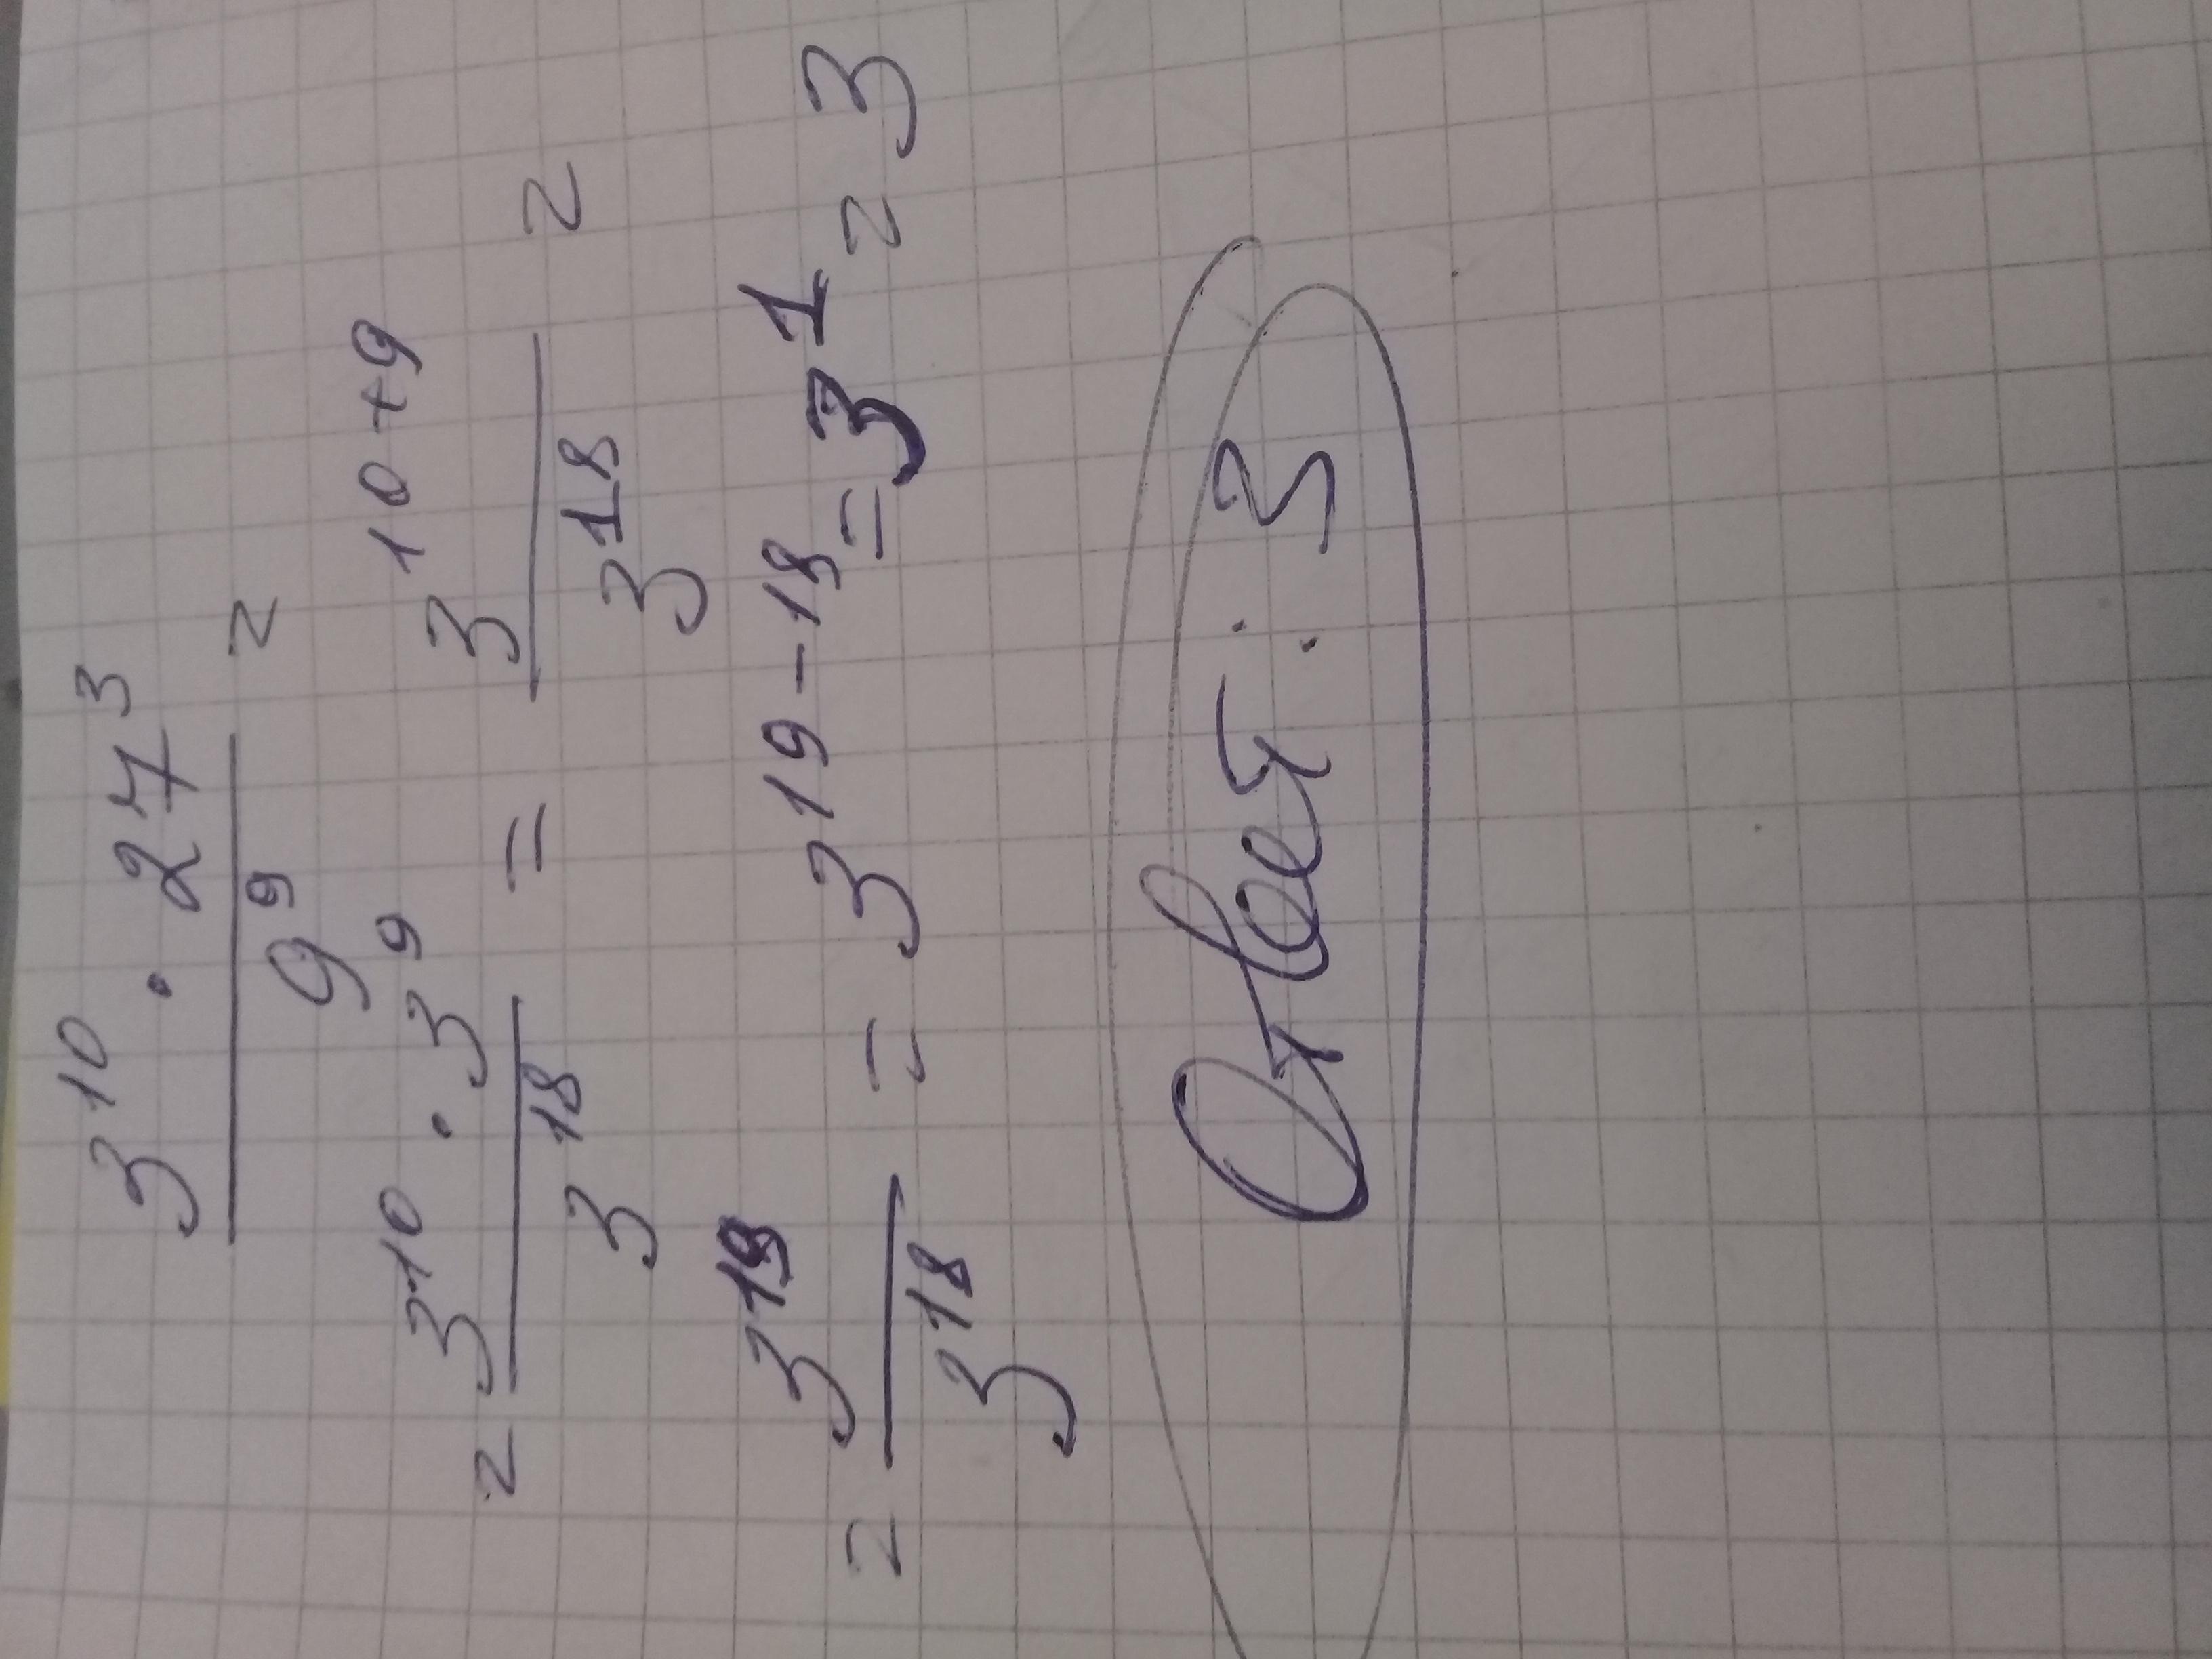 3^10 · 27^3 / 9^9 =
= 3^10 · 3^9 / 3^18 = 3^10+9 / 3^18 =
= 3^19 / 3^18 = 3^19-18 = 3^1 = 3
Ответ: 3